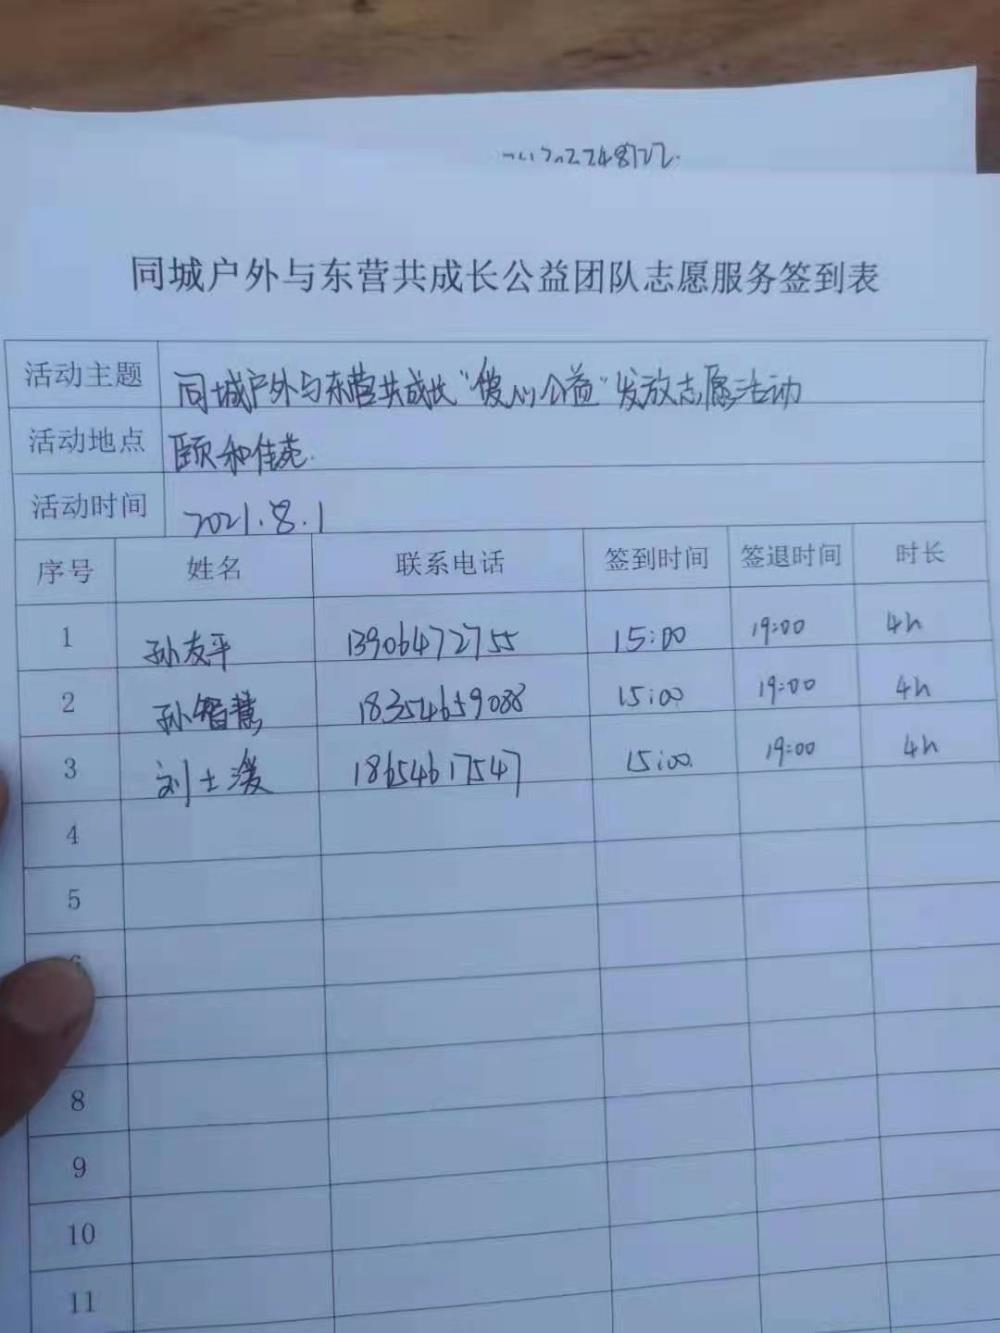 2248122.
同城户外与东营共成长公益团队志愿服务签到表
活动主题 同城户外与东营共成长"爱心公益"发放志愿活动
活动地点 颐和佳苑.
活动时间 2021.8.1
序号 姓名 联系电话 签到时间 签退时间 时长
1 孙友平 13906472755 15:00 19:00 4h
2 孙智慧 18354659088 15:00 19:00 4h
3 刘士 18654617547 15:00 19:00 4h
4
5
8
9
10
11